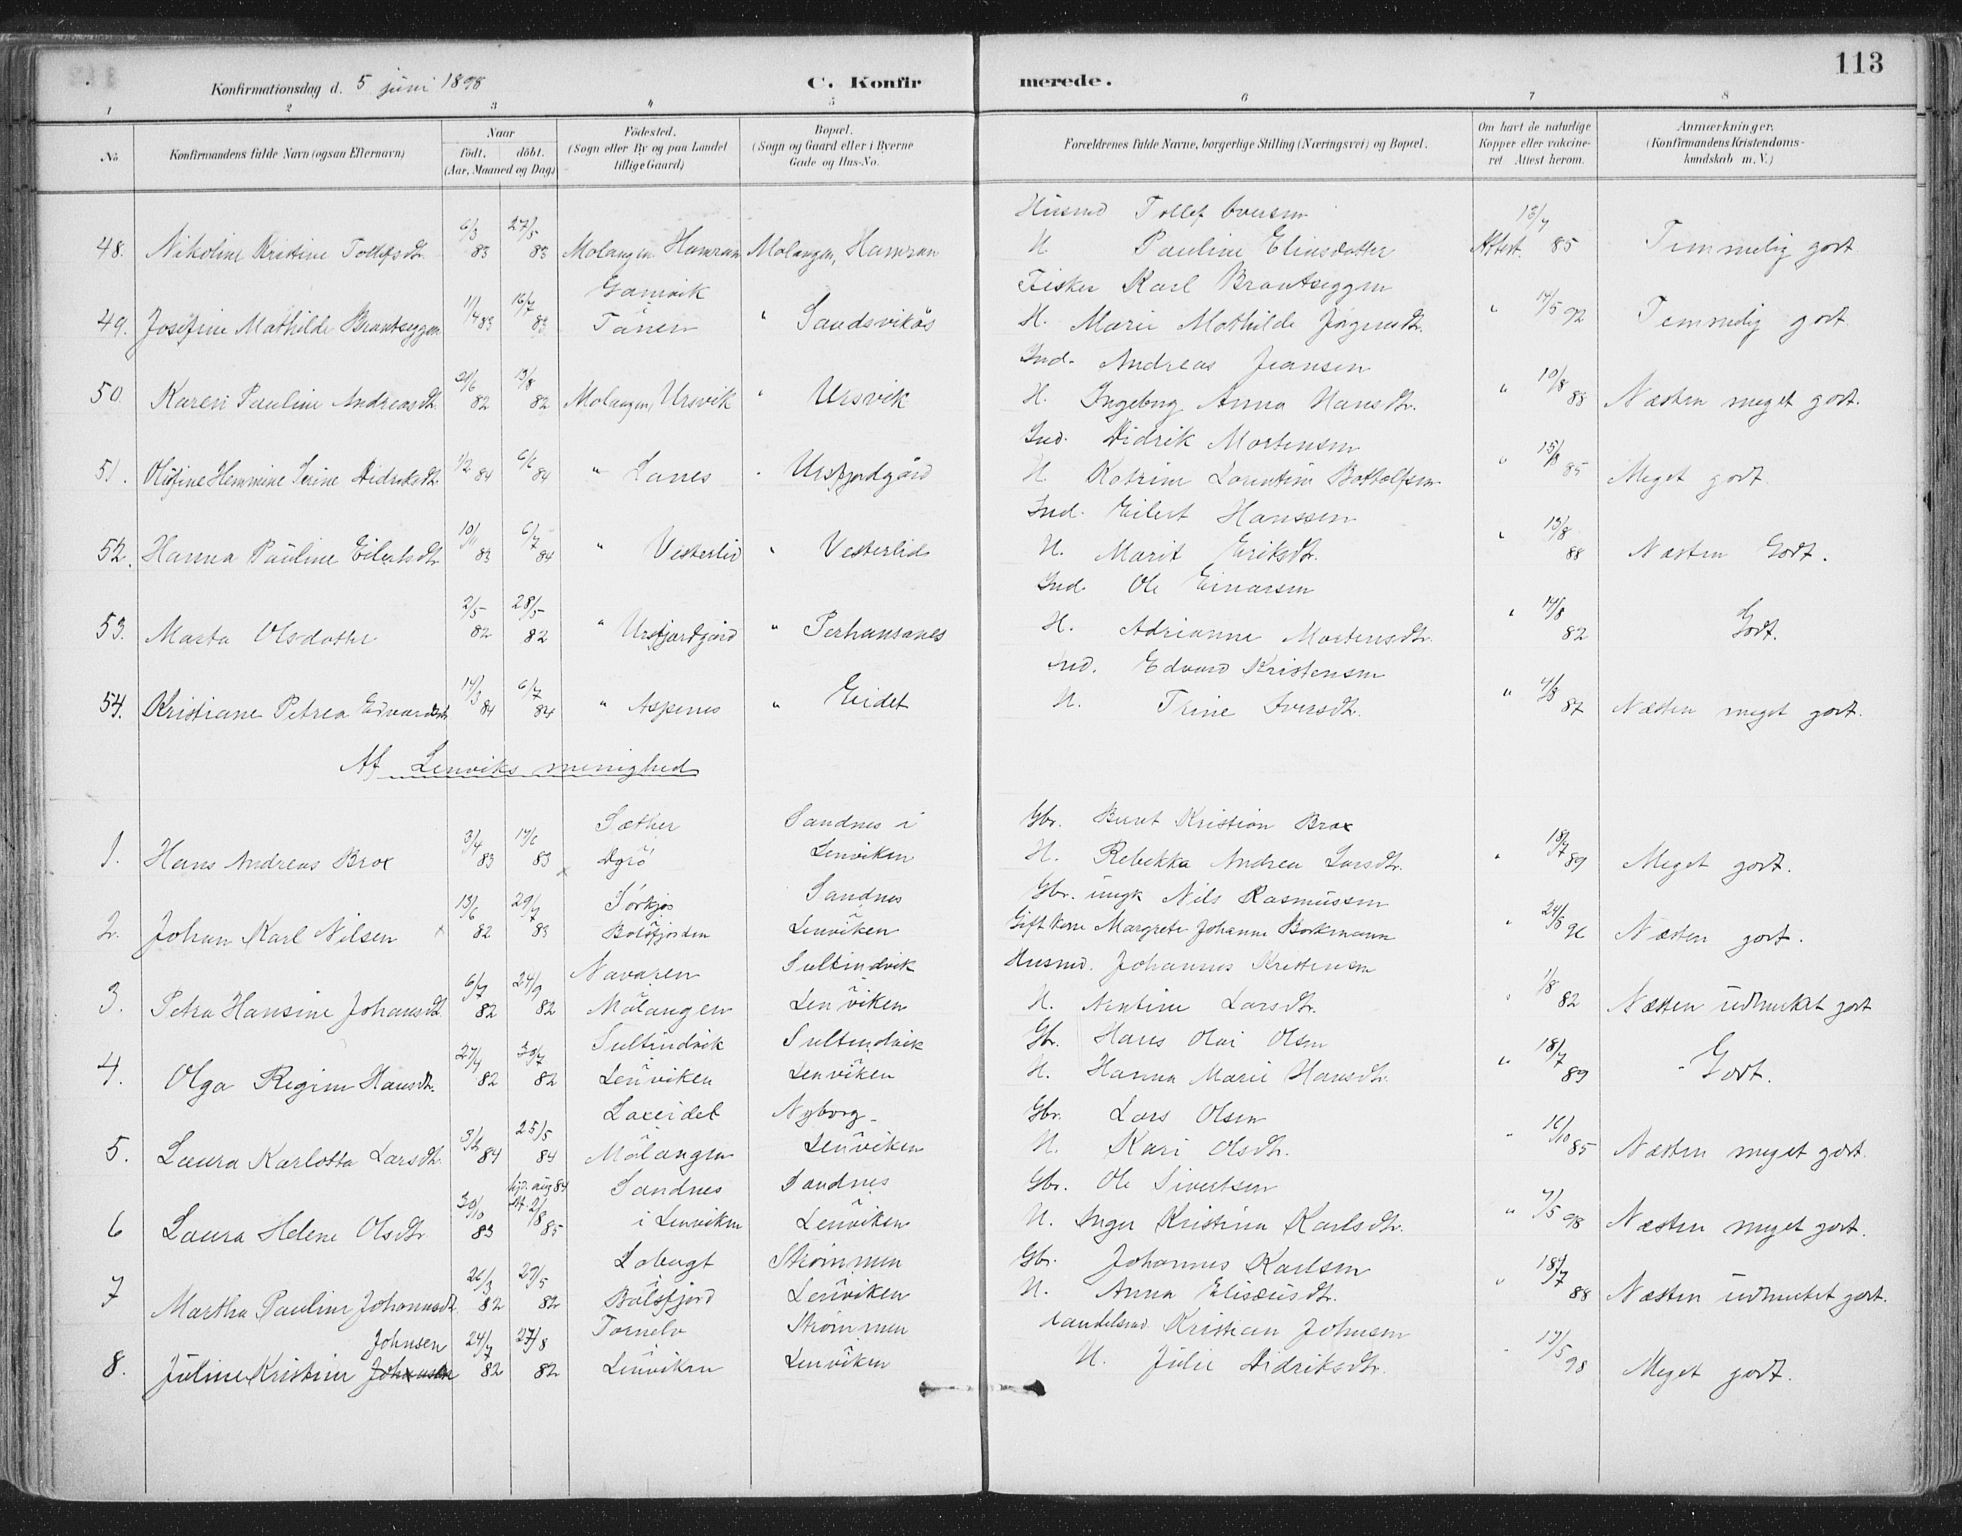 113
Konfirmationsdag d. 5 juni 1898 C. Konfir merede.
1 2 3 4 5 6 7 8
No Konfirmandens fulde Navn (ogsaa Efternavn) Naar Födested. Bopæl. Forældrenes fulde Navne, borgerlige Stilling (Næringsvei) og Bopæl. Om havt de naturlige Anmærkninger.
födt. döbt. (Sogn eller By og paa Landet (Sogn og Gaard eller i Byerne Kopper eller vakcine- (Konfirmandens Kristendoms-
(Aar, Maaned og Dag) tillige Gaard) Gade og Hus-No. ret Attest herom. kundskab m. V.)
Husmd Tollef Iversen
48. Nikoline Kristine Tollefsdtr. 6/3 83 27/5 83 Molangen Hamran Molangen, Hamran H Pauline Eliasdatter Attest. 13/7 85 Temmelig godt
Gamvik Fisker Karl Brantseggen
49. Josefine Mathilde Brantseggen 1/4 83 15/7 83 Tanen " Sandsvikås H. Marie Mathilde Jörgensdtr. " 14/5 92 Temmelig godt
Ind. Andreas Jensen
50. Karen Pauline Andreasdtr. 82 13/8 82 Molangen, Ursvik " Ursvik H. Ingebrg Anna Hansdtr. " 10/8 88 Næsten meget godt.
Ind. Didrik Mortensen
51. Olufine Hemmine Serine Didriksdtr. 1/2 84 6/6 84 " Lanes " Ursfjordgård H. Katrine Lorentine Bottolfsen " 85 Meget godt.
Ind. Eilert Hanssen
52. Hanna Pauline Eilertsdtr 10/11 83 6/7 84 " Vesterlid " Vesterlid H. Marit Eriksdtr. " 13/8 88 Næsten Godt.
Ind. Ole Einarsen
53. Marta Olsdatter 2/5 82 28/5 82 " Ursfjordgård " Perhansanes H. Adrianne Mortensdtr. " 14/8 82 Godt.
Ind. Edvard Kristensen
54. Kristiane Petrea Edvardsdtr 14/3 84 6/7 84 " Aspenes " Eidet H. Trine Iversdtr. " 4/8 87 Næsten meget godt.
Af Lenviks menighed
Sæther Sandnes i Gbr. Bernt Kristian Brox
1. Hans Andreas Brox 3/4 83 17/6 83 Dyrö Lenviken H. Rebekka Andrea Larsdtr. " 18/7 89 Meget godt.
Sörkjos Sandnes Gbr. ungk Nils Rasmussen
2. Johan Karl Nilsen 13/6 82 29/7 83 Balsfjorden Lenviken Gift Kone Margrete Johanne Borkmann " 96 Næsten godt.
Navaren Sultindvik Husmd. Johannes Kristensen
3. Petra Hansine Johansdtr. 6/7 82 24/9 82 Målangen Lenviken H. Nentine Larsdtr. " 1/8 82 Næsten udmerket godt
Sultindvik Sultindvik Gbr. Hans Olai Olsen
4. Olga Regine Hansdtr. 27/4 82 30/7 82 Lenviken Lenviken H. Hanna Marie Hansdtr. " 18/7 89 Godt.
Laxeidet Nyborg Gbr. Lars Olsen
5. Laura Karlotta Larsdtr. 84 25/5 84 Målangen Lenviken H. Kari Olsdtr. " 16/10 85 Næsten meget godt.
Sandnes Sandnes Gbr. Ole Sivertsen
6 Laura Helene Olsdtr 30/10 83 hjd. aug 84 2/8 85 i Lenviken Lenviken H. Inger Kristina Karlsdtr. " 4/5 98 Næsten meget godt.
Labugt Strömmen Gbr. Johannes Karlsen
7 Martha Pauline Johannesdtr. 26/3 82 29/5 82 Balsfjord Lenviken H. Anna Elisæusdtr. " 18/7 88 Næsten udmerket godt.
Johnsen Tarnelv Strömmen Handelsmd Kristian Johnsen
8. Juline Kristine 24/7 82 27/8 82 Lenviken Lenviken H. Julie Didriksdtr. " 17/5 98 Meget godt.